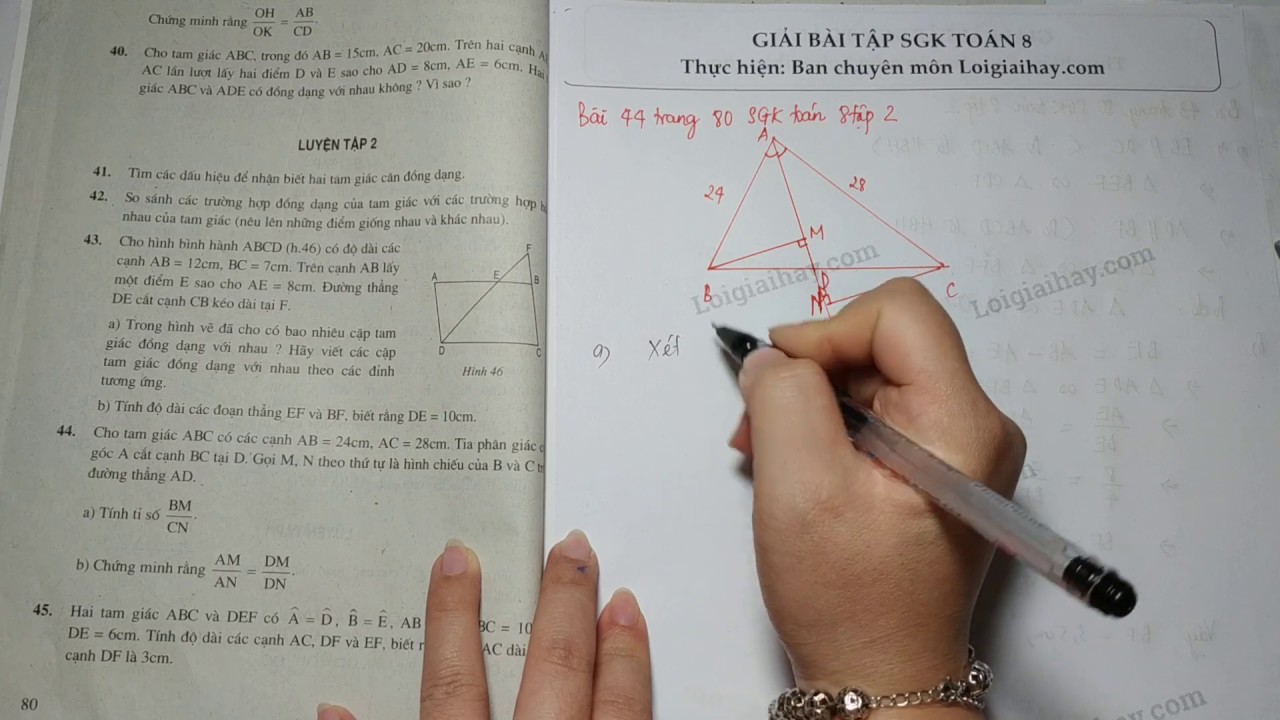 Chứng minh rằng OH/OK = AB/CD.
40. Cho tam giác ABC, trong đó AB = 15cm, AC = 20cm. Trên hai cạnh A
AC lần lượt lấy hai điểm D và E sao cho AD = 8cm, AE = 6cm. Hai
giác ABC và ADE có đồng dạng với nhau không ? Vì sao ?
LUYỆN TẬP 2
41. Tìm các dấu hiệu để nhận biết hai tam giác cân đồng dạng.
42. So sánh các trường hợp đồng dạng của tam giác với các trường hợp
nhau của tam giác (nêu lên những điểm giống nhau và khác nhau).
43. Cho hình bình hành ABCD (h.46) có độ dài các
cạnh AB = 12cm, BC = 7cm. Trên cạnh AB lấy
một điểm E sao cho AE = 8cm. Đường thẳng
DE cắt cạnh CB kéo dài tại F.
a) Trong hình vẽ đã cho có bao nhiêu cặp tam
giác đồng dạng với nhau ? Hãy viết các cặp
tam giác đồng dạng với nhau theo các đỉnh
tương ứng.
F
A E B
D C
Hình 46
b) Tính độ dài các đoạn thẳng EF và BF, biết rằng DE = 10cm.
44. Cho tam giác ABC có các cạnh AB = 24cm, AC = 28cm. Tia phân giác
góc A cắt cạnh BC tại D. Gọi M, N theo thứ tự là hình chiếu của B và C
đường thẳng AD.
a) Tính tỉ số BM/CN.
b) Chứng minh rằng AM/AN = DM/DN.
45. Hai tam giác ABC và DEF có Â = D̂, B̂ = Ê, AB BC = 10
DE = 6cm. Tính độ dài các cạnh AC, DF và EF, biết AC dài
cạnh DF là 3cm.
80
GIẢI BÀI TẬP SGK TOÁN 8
Thực hiện: Ban chuyên môn Loigiaihay.com
Bài 44 trang 80 SGK toán 8 tập 2
A
24 28
M
B D C
N
Loigiaihay.com
Loigiaihay.com
a) Xét